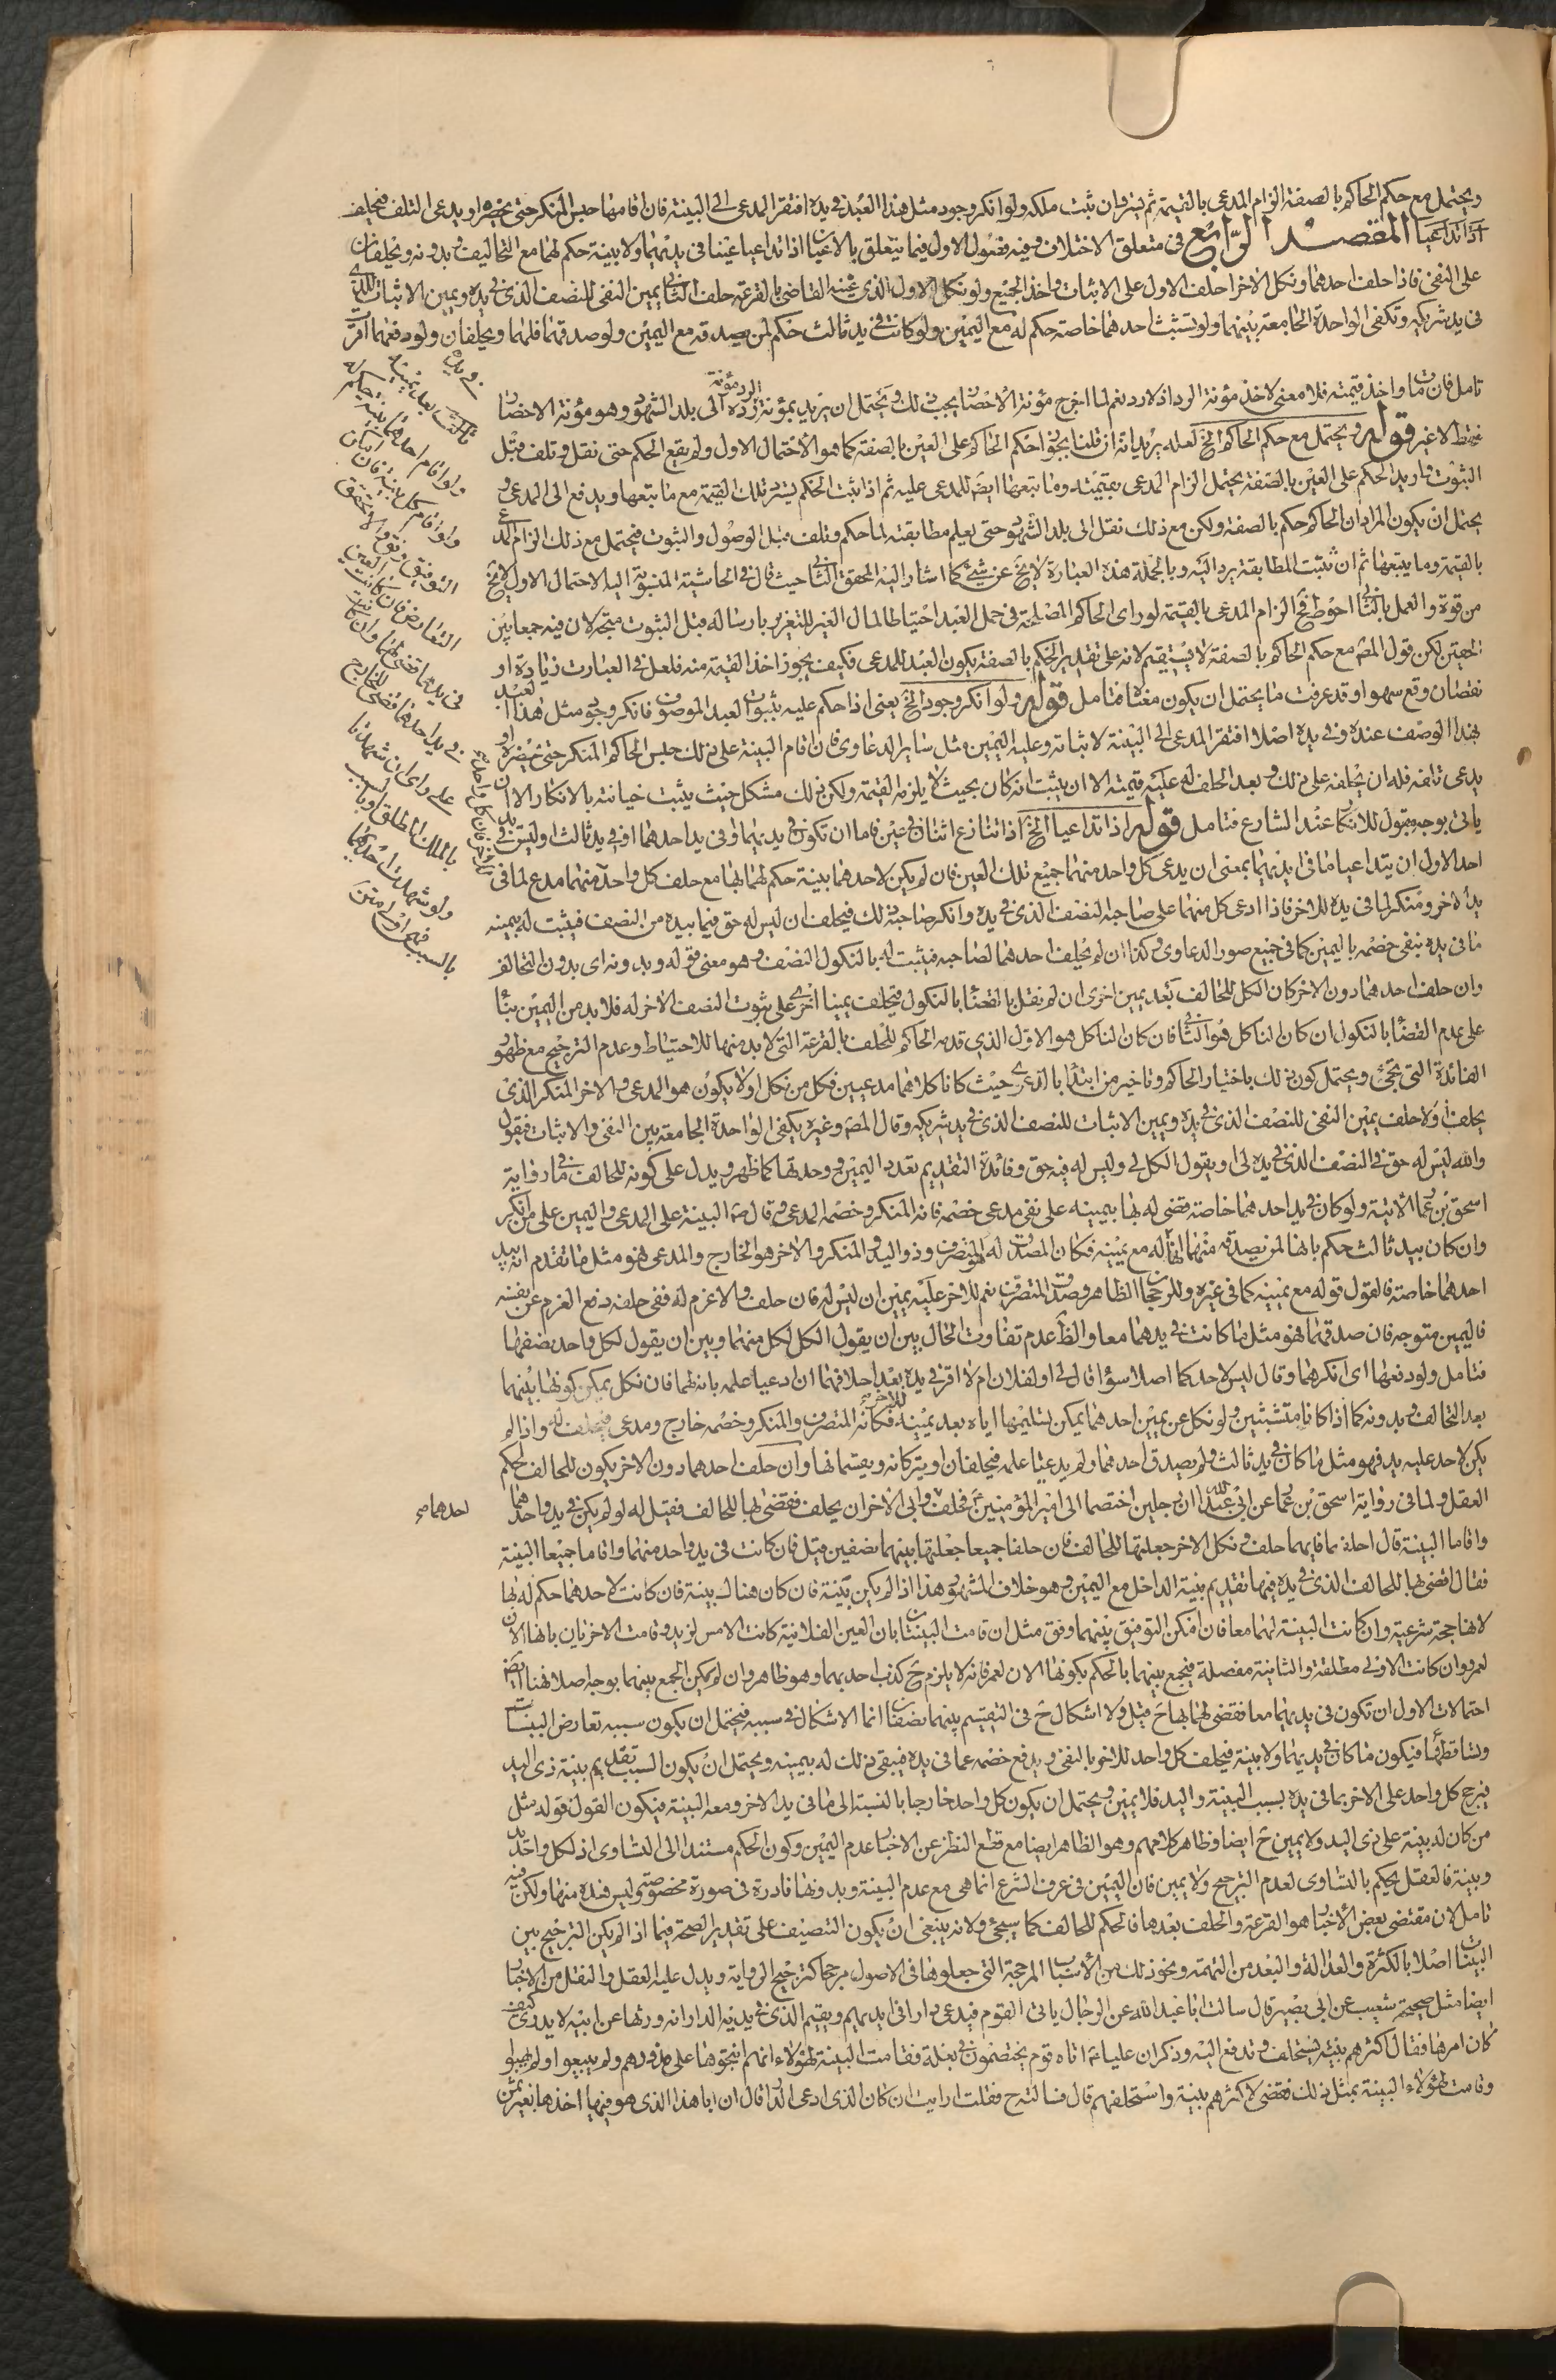 ويحتمل مع حكم الحاكم بالصفة الزام المدعى بالقيمة ثم يسترد ان ثبت ملكه ولو انكر وجود مثل هذا العبد في يده افتقر المدعى الى البينة فان اقامها حبس المنكر حتى يحضره او يدعى التلف فيحلف
المقصد الرابع في متعلق الاختلاف وفيه فصول الاول فيما يتعلق بالاعيان اذا تداعيا عينا في يديهما ولا بينة حكم لهما مع التحالف وبدونه ويحلفان
على النفى فاذا حلف احدهما ونكل الاخر احلف الاول على الاثبات واخذ الجميع ولو نكل الاول الذى عينه القاضى بالقرعة حلف الثانى يمين النفى للنصف الذى في يده ويمين الاثبات للذى
في يد شريكه وتكفى الواحدة الجامعة بينهما ولو تشبث احدهما خاصة حكم له مع اليمين ولو كانت في يد ثالث حكم لمن يصدقه مع اليمين ولو صدقهما فلهما ويحلفان ولو دفعهما اقرت
في يده
تامل فان مات واخذ قيمته فلا معنى لاخذ مؤنة الرد اذ لا رد نعم لما اخرج مؤنة الاحضار يجب ذلك ويحتمل ان يريد بمؤنة الرد مؤنة رده الى بلد الشهود وهو مؤنة الاحضار
فقط لا غير قوله ويحتمل مع حكم الحاكم الخ لعله يريد انه ان قلنا بجواز حكم الحاكم على العين بالصفة كما هو الاحتمال الاول ولم يقع الحكم حتى نقل وتلف قبل
الثبوت واريد الحكم على العين بالصفة يحتمل الزام المدعى بقيمته وما يتبعها ايضا للمدعى عليه ثم اذا ثبت الحكم يسترد تلك القيمة مع ما يتبعها ويدفع الى المدعى و
يحتمل ان يكون المراد ان الحاكم حكم بالصفة ولكن مع ذلك نقل الى بلد الشهود حتى يعلم مطابقته لما حكم وتلف قبل الوصول والثبوت فيحتمل مع ذلك الزام المدعى
بالقيمة وما يتبعها ثم ان ثبتت المطابقة يرد اليه وبالجملة هذه العبارة لا يخ عن شئ كما اشار اليه المحقق الثانى حيث قال في الحاشية المنسوبة اليه الاحتمال الاول لا يخ
من قوة والعمل بالثانى احوط فح الزام المدعى بالقيمة لو راى الحاكم المصلحة في حمل العبد احتياطا لمال الغير للتغرير بارساله قبل الثبوت متجه لان فيه جمعا بين
الحقين لكن قول المص مع حكم الحاكم بالصفة لا يستقيم لانه على تقدير الحكم بالصفة يكون العبد للمدعى فكيف يجوز اخذ القيمة منه فلعل في العبارت زيادة او
نقصان وقع سهوا وقد عرفت ما يحتمل ان يكون معناه فتامل قوله ولو انكر وجود الخ يعنى اذا حكم عليه بثبوت العبد الموصوف فانكر وجود مثل هذا العبد
بهذا الوصف عنده وفي يده اصلا افتقر المدعى الى البينة لاثباته وعليه اليمين مثل ساير الدعاوى فان اقام البينة على ذلك حبس الحاكم المنكر حتى يحضره او
يدعى تلفه فله ان يحلفه على ذلك وبعد الحلف له عليه قيمته الا ان يثبت انه كان بحيث لا يلزمه القيمة ولكن ذلك مشكل حيث يثبت خيانته بالانكار الا ان
ياتى بوجه مقبول للانكار عند الشارع فتامل قوله اذا تداعيا الخ اذا تنازع اثنان في عين فاما ان تكون في يديهما او في يد احدهما او في يد ثالث او ليس في يد
احد الاول ان يتداعيا ما في ايديهما بمعنى ان يدعى كل واحد منهما جميع تلك العين فان لم يكن لاحدهما بينة حكم لهما بها مع حلف كل واحد منهما مدع لما في
يد الاخر ومنكر لما في يده للاخر فاذا ادعى كل منهما على صاحبه النصف الذى في يده وانكر صاحبه ذلك فيحلف ان ليس له حق فيما بيده من النصف فيثبت له بيمينه
ما في يده بنفى خصمه باليمين كما في جميع صور الدعاوى وكذا ان لم يحلف احدهما لصاحبه فيثبت له بالنكول النصف وهو معنى قوله وبدونه اى بدون التحالف
وان حلف احدهما دون الاخر كان الكل للحالف بعد يمين اخرى ان لم نقل بالقضاء بالنكول فيحلف يمينا اخرى على ثبوت النصف الاخر له فلا بد من اليمين بناء
على عدم القضاء بالنكول ان كان الناكل هو الثانى فان كان الناكل هو الاول الذى قدمه الحاكم للحلف بالقرعة التى لا بد منها للاحتياط وعدم الترجيح مع ظهور
الفائدة التى تجئ ويحتمل كون ذلك باختيار الحاكم وتاخير من ابتدا بالدعوى حيث كانا كلاهما مدعيين فكل من نكل اولا يكون هو المدعى والاخر المنكر الذى
يحلف اولا حلف يمين النفى للنصف الذى في يده ويمين الاثبات للنصف الذى في يد شريكه وقال المص وغيره يكفى الواحدة الجامعة بين النفى والاثبات فيقول
والله ليس له حق في النصف الذى في يده لى او يقول الكل لى وليس له فيه حق وفائدة التقديم تعدد اليمين ووحدتها كما ظهر ويدل على كونه للحالف ما في رواية
اسحق بن عمار الاتية ولو كان في يد احدهما خاصة قضى له بها بيمينه على نفى مدعى خصمه فانه المنكر وخصمه المدعى وقال ص البينة على المدعى واليمين على من انكر
وان كان بيد ثالث حكم بانها لمن يصدقه منهما انها له مع يمينه فكان المصدق له المتصرف وذو اليد والمنكر والاخر هو الخارج والمدعى فهو مثل ما تقدم انه بيد
احدهما خاصة فالقول قوله مع يمينه كما في غيره وللرجحان الظاهر وصدق المتصرف نعم للاخر عليه يمين ان ليس له فان حلف والا غرم له ففى حلفه دفع الغرم عن نفسه
فاليمين متوجه فان صدقهما فهو مثل ما كانت في يدهما معا والظ عدم تفاوت الحال بين ان يقول الكل لكل منهما وبين ان يقول لكل واحد نصفها
فتامل ولو دفعهما اى انكرهما وقال ليس لاحدكما اصلا سواء قال لى او لفلان ام لا اقر في يده بعد احلافهما ان ادعيا علمه بانه لهما فان نكل يمكن كونها بينهما
بعد التحالف وبدونه كما اذا كانا متشبثين ولو نكل عن يمين احدهما يمكن تسليمها اياه بعد يمينه للاخر فكانه المتصرف والمنكر وخصمه خارج ومدعى فيحلف له واذا لم
يكن لاحد عليه يد فهو مثل ما كان في يد ثالث ولم يصدق احدهما ولم يدعيا علمه فيحلفان او يتركانه ويقسمانها وان حلف احدهما دون الاخر يكون للحالف لحكم
العقل ولما في رواية اسحق بن عمار عن ابى عبد الله ان رجلين اختصما الى امير المؤمنين فحلف وابى الاخر ان يحلف فقضى بها للحالف فقيل له لو لم يكن في يد واحد منهما
احدهما ص
واقاما البينة قال احلفهما فايهما حلف ونكل الاخر جعلتها للحالف فان حلفا جميعا جعلتها بينهما نصفين قيل فان كانت في يد واحد منهما واقاما جميعا البينة
فقال اقضى بها للحالف الذى في يده فيها تقديم بينة الداخل مع اليمين وهو خلاف المشهور هذا اذا لم يكن بينة فان كان هناك بينة فان كانت لاحدهما حكم له بها
لانها حجة شرعية وان كانت البينة لهما معا فان امكن التوفيق بينهما وفق مثل ان قامت البينتان بان العين الفلانية كانت الامس لزيد وقامت الاخريان بانها الان
لعمرو وان كانت الاولى مطلقة والثانية مفصلة فيجمع بينهما بالحكم بكونها الان لعمر فانه لا يلزم ح كذب احديهما وهو ظاهر وان لم يمكن الجمع بينهما بوجه اصلا فهنا ايضا
احتمالات الاول ان تكون في يديهما معا فقضى لهما بها ح قيل ولا اشكال ح في التقسيم بينهما نصفان انما الاشكال في سببه فيحتمل ان يكون سببه تعارض البينات
وتساقطهما فيكون ما كان في يديهما ولا بينة فيحلف كل واحد للاخر بالنفى ويدفع خصمه عما في يده فيبقى ذلك له بيمينه ويحتمل ان يكون السبب تقديم بينة ذى اليد
فيرجح كل واحد على الاخر بما في يده بسبب البينة واليد فلا يمين ويحتمل ان يكون كل واحد خارجا بالنسبة الى ما في يد الاخر ومعه البينة فيكون القول قوله مثل
من كان له بينة على ذى اليد ولا يمين ح ايضا وظاهر كلامهم وهو الظاهر ايضا مع قطع النظر عن الاخبار عدم اليمين وكون الحكم مستندا الى التساوى اذ لكل واحد يد
وبينة فالعقل يحكم بالتساوى لعدم الترجيح ولا يمين فان اليمين في عرف الشرع انما هى مع عدم البينة وبدونها نادرة في صورة مخصوصة وليس هذه منها ولكن فيه
تامل لان مقتضى بعض الاخبار هو القرعة والحلف بعدها فالحكم للحالف كما سيجئ ولانه ينبغى ان يكون التنصيف على تقدير الصحة فيما اذا لم يكن الترجيح بين
البينات اصلا بالكثرة والعدالة والبعد من التهمة ونحو ذلك من الاسباب المرجحة التى جعلوها في الاصول مرجحا كترجيح الرواية ويدل عليه العقل والنقل من الاخبار
ايضا مثل صحيحة شعيب عن ابى بصير قال سالت ابا عبد الله عن الرجل ياتى القوم فيدعى دارا في ايديهم ويقيم الذى في يديه الدار انه ورثها عن ابيه لا يدرى كيف
كان امرها فقال اكثرهم بينة يستحلف وتدفع اليه وذكر ان عليا ع اتاه قوم يختصمون في بغلة فقامت البينة لهؤلاء انهم انتجوها على مذودهم ولم يبيعوا ولم يهبوا
وقامت لهؤلاء البينة بمثل ذلك فقضى لاكثرهم بينة واستحلفهم قال فسالته ح فقلت ارايت ان كان الذى ادعى الدار قال ان ابا هذا الذى هو فيها اخذها بغير ثمن
ولو اقام احدهما بينة حكم له
ولو اقام كل بينة فان امكن
التوفيق وفق والا تحقق
التعارض فان كانت العين
في يدهما قضى لهما وان كانت
في يد احدهما قضى للخارج
على راى ان شهدتا
بالملك المطلق او بالسبب
ولو شهدت احدهما
بالسبب